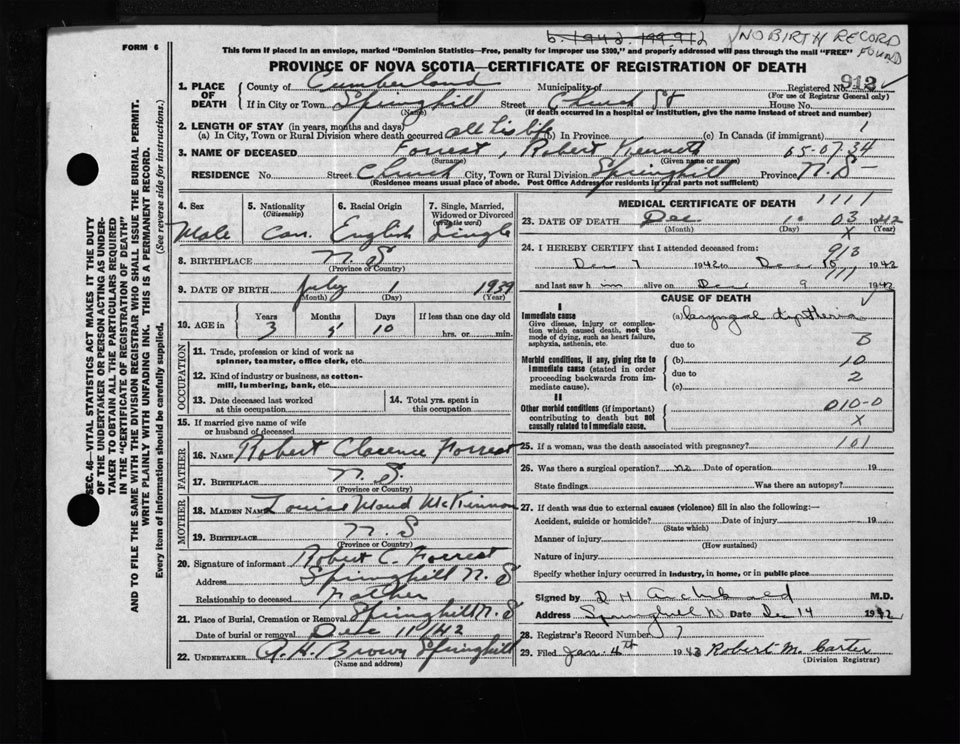 b. 1942. 199.912 √NO BIRTH RECORD FOUND
FORM 6
This form if placed in an envelope, marked "Dominion Statistics—Free, penalty for improper use $300," and properly addressed will pass through the mail "FREE"
PROVINCE OF NOVA SCOTIA—CERTIFICATE OF REGISTRATION OF DEATH
1. PLACE OF DEATH County of Cumberland Municipality of Registered No. 913
(For use of Registrar General only)
If in City or Town Springhill Street Church St House No.
(Name) (If death occurred in a hospital or institution, give the name instead of street and number)
2. LENGTH OF STAY (in years, months and days)
(a) In City, Town or Rural Division where death occurred all his life (b) In Province (c) In Canada (if immigrant) 1
3. NAME OF DECEASED Forrest, Robert Kenneth 65-07.34
(Surname) (Given name or names)
RESIDENCE No. Street Church City, Town or Rural Division Springhill Province N.S-
(Residence means usual place of abode. Post Office Address for residents in rural parts not sufficient)
4. Sex Male
5. Nationality (Citizenship) Can.
6. Racial Origin English
7. Single, Married, Widowed or Divorced (write the word) Single
8. BIRTHPLACE N. S
(Province or Country)
9. DATE OF BIRTH July 1 1939
(Month) (Day) (Year)
10. AGE in Years 3 Months 5 Days 10 If less than one day old hrs. or min.
OCCUPATION
11. Trade, profession or kind of work as spinner, teamster, office clerk, etc.
12. Kind of industry or business, as cotton-mill, lumbering, bank, etc.
13. Date deceased last worked at this occupation
14. Total yrs. spent in this occupation
15. If married give name of wife or husband of deceased
FATHER
16. NAME Robert Clarence Forrest
17. BIRTHPLACE N. S.
(Province or Country)
MOTHER
18. MAIDEN NAME Louise Maud McKinnon
19. BIRTHPLACE N S
(Province or Country)
20. Signature of informant Robert C. Forrest
Address Springhill N. S
Relationship to deceased Father
21. Place of Burial, Cremation or Removal Springhill N. S
Date of burial or removal Dec 11/42
22. UNDERTAKER A. H. Brown Springhill
(Name and address)
MEDICAL CERTIFICATE OF DEATH 1111
23. DATE OF DEATH Dec 10 03 1942
(Month) (Day) X (Year)
24. I HEREBY CERTIFY that I attended deceased from: 913
Dec 7 1942 to Dec 10 1942
111
and last saw h im alive on Dec 9 1942
CAUSE OF DEATH
I
Immediate cause (a) Laryngal diptheria
Give disease, injury or complication which caused death, not the mode of dying, such as heart failure, asphyxia, asthenia, etc.
due to B
Morbid conditions, if any, giving rise to immediate cause (stated in order proceeding backwards from immediate cause).
(b) 10
due to 2
(c)
II
Other morbid conditions (if important) contributing to death but not causally related to immediate cause.
010-0
X
25. If a woman, was the death associated with pregnancy? 101
26. Was there a surgical operation? no Date of operation 19
State findings Was there an autopsy?
27. If death was due to external causes (violence) fill in also the following:—
Accident, suicide or homicide? Date of injury 19
(State which)
Manner of injury
(How sustained)
Nature of injury
Specify whether injury occurred in industry, in home, or in public place
Signed by D H Archibald M.D.
Address Springhill N Date Dec 14 1942
28. Registrar's Record Number 7
29. Filed Jan. 4th 1943 Robert M. Carter
(Division Registrar)
SEC. 46—VITAL STATISTICS ACT MAKES IT THE DUTY
OF THE UNDERTAKER OR PERSON ACTING AS UNDERTAKER TO OBTAIN ALL THE PARTICULARS REQUIRED
IN THE "CERTIFICATE OF REGISTRATION OF DEATH"
AND TO FILE THE SAME WITH THE DIVISION REGISTRAR WHO SHALL ISSUE THE BURIAL PERMIT.
WRITE PLAINLY WITH UNFADING INK. THIS IS A PERMANENT RECORD.
Every item of information should be carefully supplied. (See reverse side for instructions.)